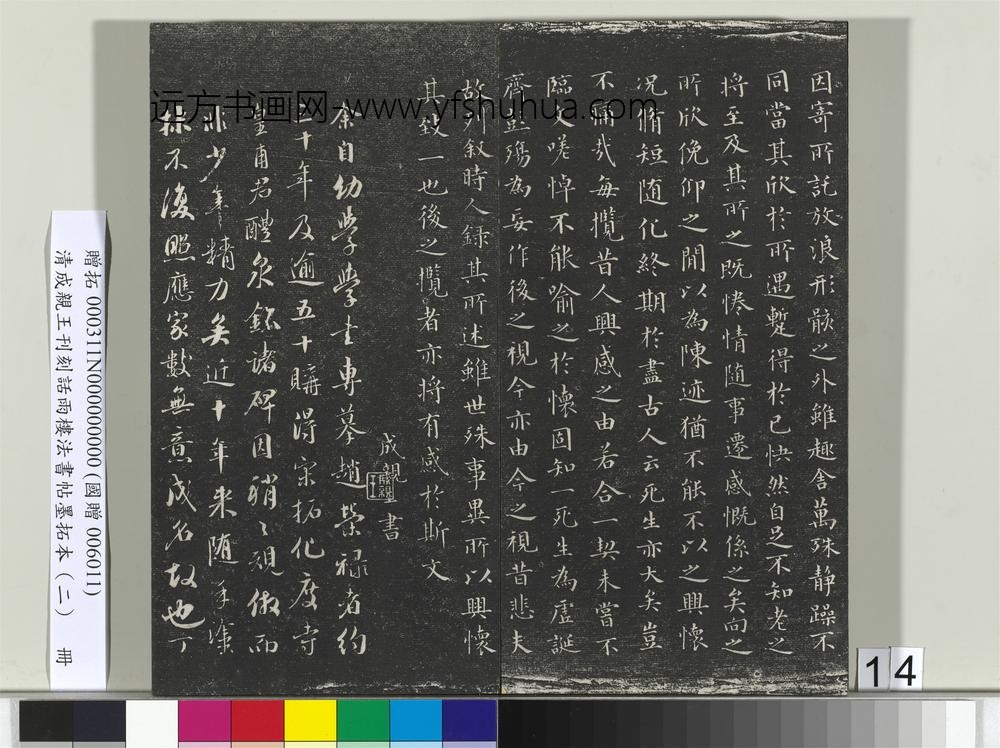 远方书画网-www.yfshuhua.com
因寄所託放浪形骸之外雖趣舍萬殊静躁不
同當其欣於所遇蹔得於己快然自足不知老之
將至及其所之既惓情随事遷感慨係之矣向之
所欣俛仰之間以為陳迹猶不能不以之興懷
况脩短随化終期於盡古人云死生亦大矣豈
不痛哉每攬昔人興感之由若合一契未嘗不
臨文嗟悼不能喻之於懷固知一死生為虛誕
齊彭殤為妄作後之視今亦由今之視昔悲夫
故列叙時人録其所述雖世殊事異所以興懷
其致一也後之攬者亦将有感於斯文
成親王書
余自幼學學書專摹趙榮禄者約
十年及逾五十購得宋拓化度寺
皇甫君醴泉銘諸碑因稍々規倣而
非少年精力矣近十年来随手塗
抹不復照應家數無意成名故也丁
贈拓 000311N000000000 (國贈 006011)
清成親王刊刻話雨樓法書帖墨拓本（二） 冊
14